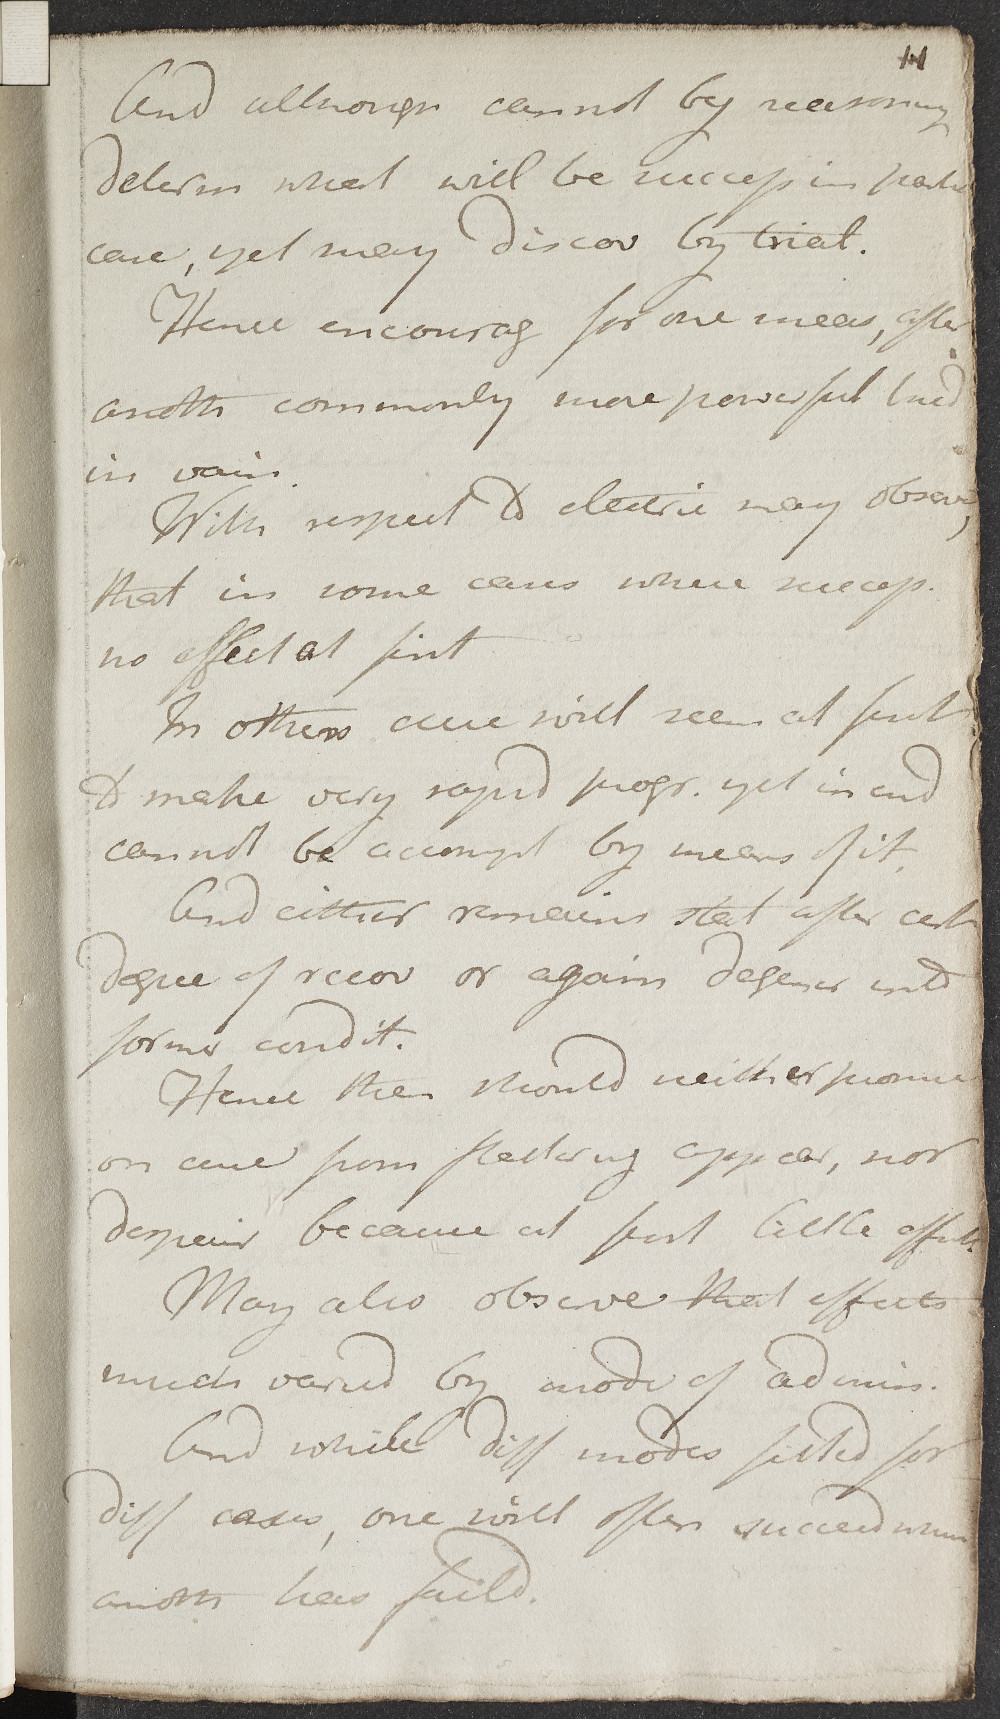 111
And although cannot by reasoning
determ what will be success in partic
case, yet may discov by trial.
Hence encourag for one meas, after
anoth commonly more powerful tried
in vain.
With respect to electric may observ,
that in some cases where success.
no effect at first
In others cure will seem at first
to make very rapid progr. yet in end
cannot be accompl by means of it.
And either remains stat after cert
degree of recov or again degener into
former condit.
Hence then should neither promise
on cure from flattering appear, nor
despair because at first little effect
May also observe that effects
much varied by mode of admin.
And while diff modes fitted for
diff cases, one will often succeed when
anoth has faild.